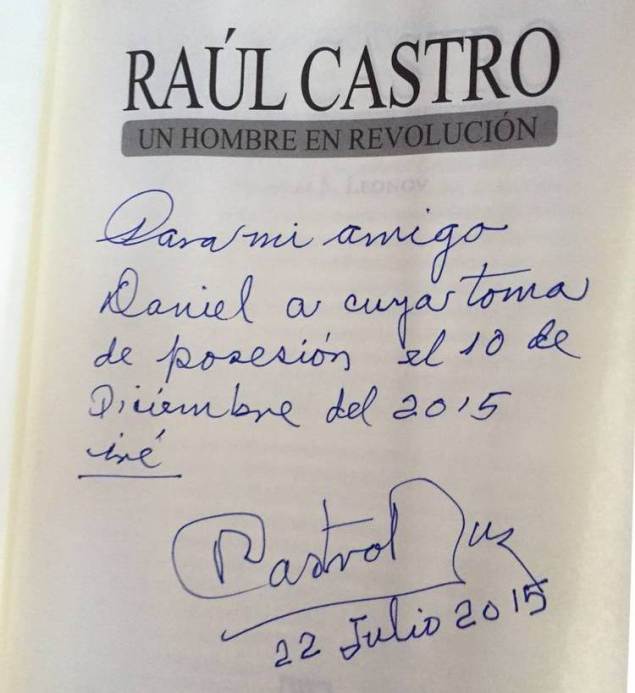 RAÚL CASTRO
UN HOMBRE EN REVOLUCIÓN
Leonov
Para mi amigo
Daniel a cuya toma
de posesión el 10 de
Diciembre del 2015
iré
RCastro Ruz
22 Julio 2015